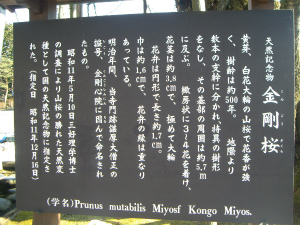 天然記念物 金剛桜
黄芽、白花大輪の山桜で花香が強
く、樹齢は約500年。 地際より
数本の支幹に分かれ、特異の樹形
をなし、その基部の周囲は約5.7m
に及ぶ。 微房状に3〜4花を着け、
花茎は約3.8cmで、極めて大輪
花弁は円形で長さ約1.7cm、
巾は約1.6cmで、花弁の縁は重なり
あっている。
明治年間、当寺門跡諶厚大僧正の
諡号、金剛心院に因んで命名され
たもの。
昭和11年5月10日三好理学博士
の調査により山桜の勝れた天然変
種として国の天然記念物に指定さ
れた。(指定日 昭和11年12月16日)
(学名)Prunus mutabilis Miyosf Kongo Miyos.